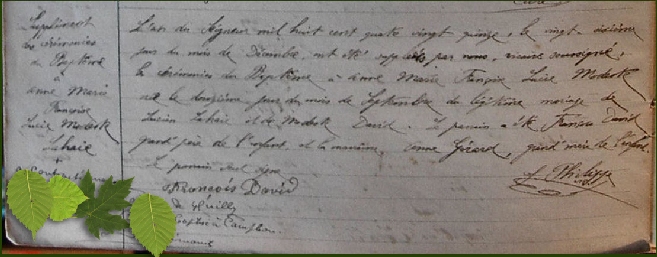 Supplément
de cérémonies
de Baptême
à
Anne Marie
Françoise
Lucie Modeste
Lahaie
L'an du Seigneur mil huit cent quatre vingt quinze, le vingt
jour du mois de Décembre, ont été suppléés par nous, vicaire soussigné,
les cérémonies du Baptême à Anne Marie Françoise Lucie Modeste
née le douzième jour du mois de Septembre du légitime mariage de
Lucien Lahaie et de Modeste David. Le parrain a été François David
grand père de l'enfant et la marraine, Anne Gérard, grand'mère de l'enfant.
Le parrain seul signe
François David
J. Philippe